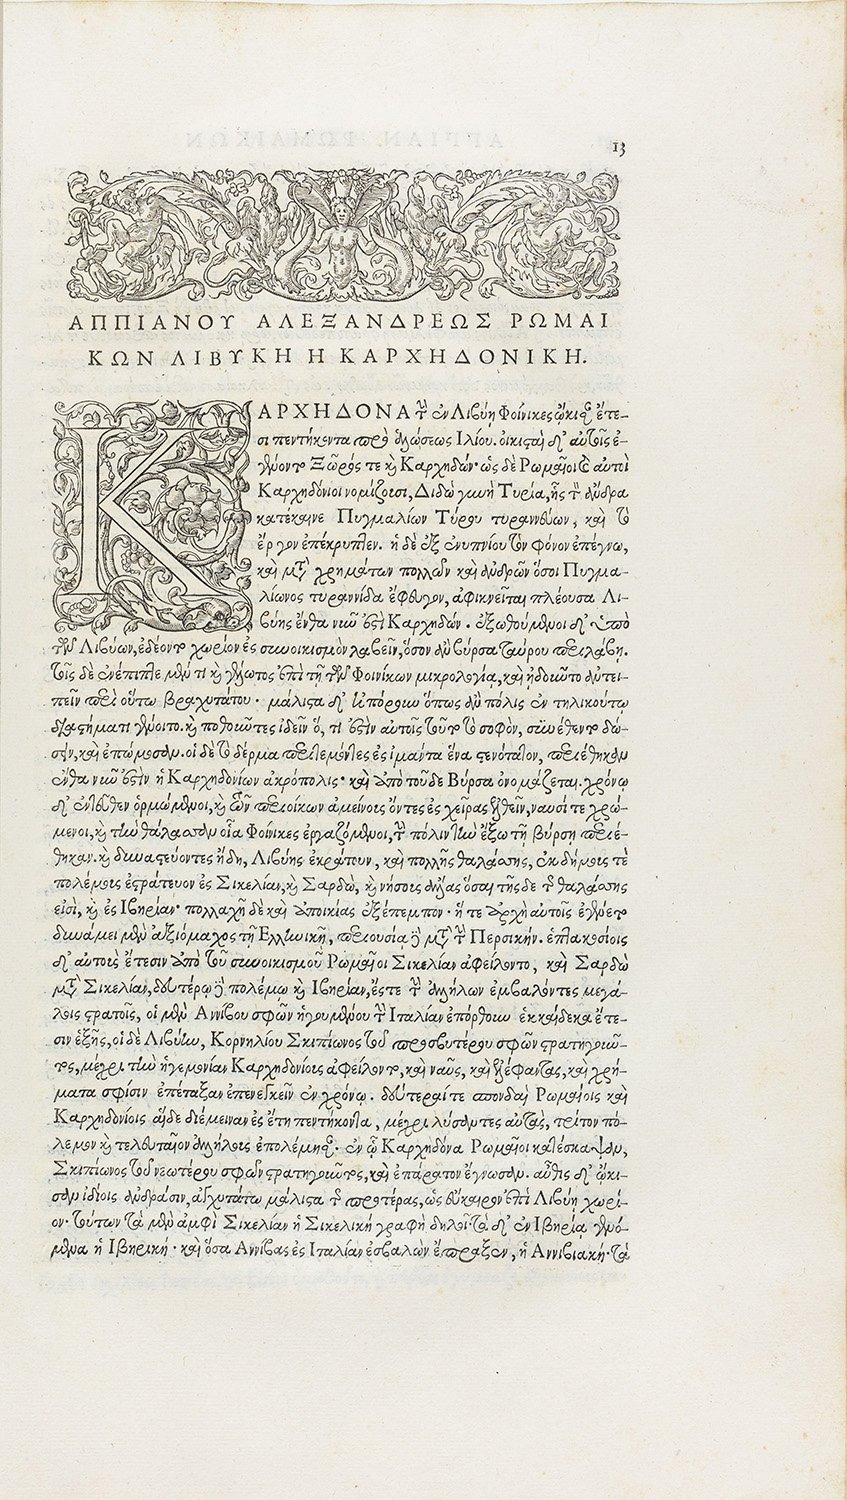 13
ΑΠΠΙΑΝΟΥ ΑΛΕΞΑΝΔΡΕΩΣ ΡΩΜΑΙ
ΚΩΝ ΛΙΒΥΚΗ Η ΚΑΡΧΗΔΟΝΙΚΗ.
ΚΑΡΧΗΔΟΝΑ τὴν ἐν Λιβύῃ Φοίνικες ᾤκισαν ἔτε-
σι πεντήκοντα πρὸ ἁλώσεως Ἰλίου. οἰκισταὶ δ' αὐτῆς ἐ-
γένοντο Ξῶρός τε καὶ Καρχηδών· ὡς δὲ Ρωμαῖοι καὶ αὐτοὶ
Καρχηδόνιοι νομίζουσι, Διδὼ γυνὴ Τυρία, ἧς τὸν ἄνδρα
κατέκαινε Πυγμαλίων Τύρου τυραννεύων, καὶ τὸ
ἔργον ἐπέκρυπτεν. ἡ δὲ ἐξ ἐνυπνίου τὸν φόνον ἐπέγνω,
καὶ μετὰ χρημάτων πολλῶν καὶ ἀνδρῶν ὅσοι Πυγμα-
λίωνος τυραννίδα ἔφευγον, ἀφικνεῖται πλέουσα Λι-
βύης ἔνθα νῦν ἐστὶ Καρχηδών. ἐξωθούμενοι δ' ὑπὸ
τῶν Λιβύων, ἐδέοντο χωρίον ἐς συνοικισμὸν λαβεῖν, ὅσον ἂν βύρσα ταύρου περιλάβῃ.
τοῖς δὲ ἐνέπιπτε μέν τι καὶ γέλωτος ἐπὶ τῇ τῶν Φοινίκων μικρολογίᾳ, καὶ ᾐδοῦντο ἀντει-
πεῖν περὶ οὕτω βραχυτάτου· μάλιστα δ' ἠπόρουν ὅπως ἂν πόλις ἐν τηλικούτῳ
διαστήματι γένοιτο. καὶ ποθοῦντες ἰδεῖν ὅ, τι ἐστὶν αὐτοῖς τοῦτο τὸ σοφὸν, συνέθεντο δώ-
σειν, καὶ ἐπώμοσαν. οἱ δὲ τὸ δέρμα περιτεμόντες ἐς ἱμάντα ἕνα στενότατον, περιέθηκαν
ἔνθα νῦν ἐστὶν ἡ Καρχηδονίων ἀκρόπολις· καὶ ἀπὸ τοῦδε Βύρσα ὀνομάζεται. χρόνῳ
δ' ἐντεῦθεν ὁρμώμενοι, καὶ τῶν περιοίκων ἀμείνους ὄντες ἐς χεῖρας ἐλθεῖν, ναυσί τε χρώ-
μενοι, καὶ τὴν θάλασσαν οἷα Φοίνικες ἐργαζόμενοι, τὴν πόλιν τὴν ἔξω τῇ βύρσῃ περιέ-
θηκαν. καὶ δυναστεύοντες ἤδη, Λιβύης ἐκράτουν, καὶ πολλῆς θαλάσσης, ἐκδήμους τὲ
πολέμους ἐστράτευον ἐς Σικελίαν, καὶ Σαρδὼ, καὶ νήσους ἄλλας ὅσαι τῆσδε τῆς θαλάσσης
εἰσὶ, καὶ ἐς Ἰβηρίαν· πολλαχῆ δὲ καὶ ἀποικίας ἐξέπεμπον· ἥ τε ἀρχὴ αὐτοῖς ἐγένετο
δυνάμει μὲν ἀξιόμαχος τῇ Ἑλληνικῇ, περιουσίᾳ δὲ μετὰ τὴν Περσικήν. ἑπτακοσίοις
δ' αὐτοὺς ἔτεσιν ἀπὸ τοῦ συνοικισμοῦ Ρωμαῖοι Σικελίαν ἀφείλοντο, καὶ Σαρδὼ
μετὰ Σικελίαν, δευτέρῳ δὲ πολέμῳ καὶ Ἰβηρίαν, ἔς τε τὴν ἀλλήλων ἐμβαλόντες μεγά-
λοις στρατοῖς, οἱ μὲν Ἀννίβου σφῶν ἡγουμένου τὴν Ἰταλίαν ἐπόρθουν ἑκκαίδεκα ἔτε-
σιν ἑξῆς, οἱ δὲ Λιβύην, Κορνηλίου Σκιπίωνος τοῦ πρεσβυτέρου σφῶν στρατηγοῦν-
τος, μέχρι τὴν ἡγεμονίαν Καρχηδονίους ἀφείλοντο, καὶ ναῦς, καὶ ἐλέφαντας, καὶ χρή-
ματα σφίσιν ἐπέταξαν ἐπενεγκεῖν ἐν χρόνῳ. δεύτεραί τε σπονδαὶ Ρωμαίοις καὶ
Καρχηδονίοις αἵδε διέμειναν ἐς ἔτη πεντήκοντα, μέχρι λύσαντες αὐτὰς, τρίτον πό-
λεμον καὶ τελευταῖον ἀλλήλοις ἐπολέμησαν· ἐν ᾧ Καρχηδόνα Ρωμαῖοι κατέσκαψαν,
Σκιπίωνος τοῦ νεωτέρου σφῶν στρατηγοῦντος, καὶ ἐπάρατον ἔγνωσαν. αὖθις δ' ᾤκι-
σαν ἰδίοις ἀνδράσιν, ἀγχοτάτω μάλιστα τῆς προτέρας, ὡς εὔκαιρον ἐπὶ Λιβύῃ χωρί-
ον· τούτων τὰ μὲν ἀμφὶ Σικελίαν ἡ Σικελικὴ γραφὴ δηλοῖ· τὰ δ' ἐν Ἰβηρίᾳ γενό-
μενα ἡ Ἰβηρική· καὶ ὅσα Ἀννίβας ἐς Ἰταλίαν ἐσβαλὼν ἔπραξεν, ἡ Ἀννιβιακή· τὰ